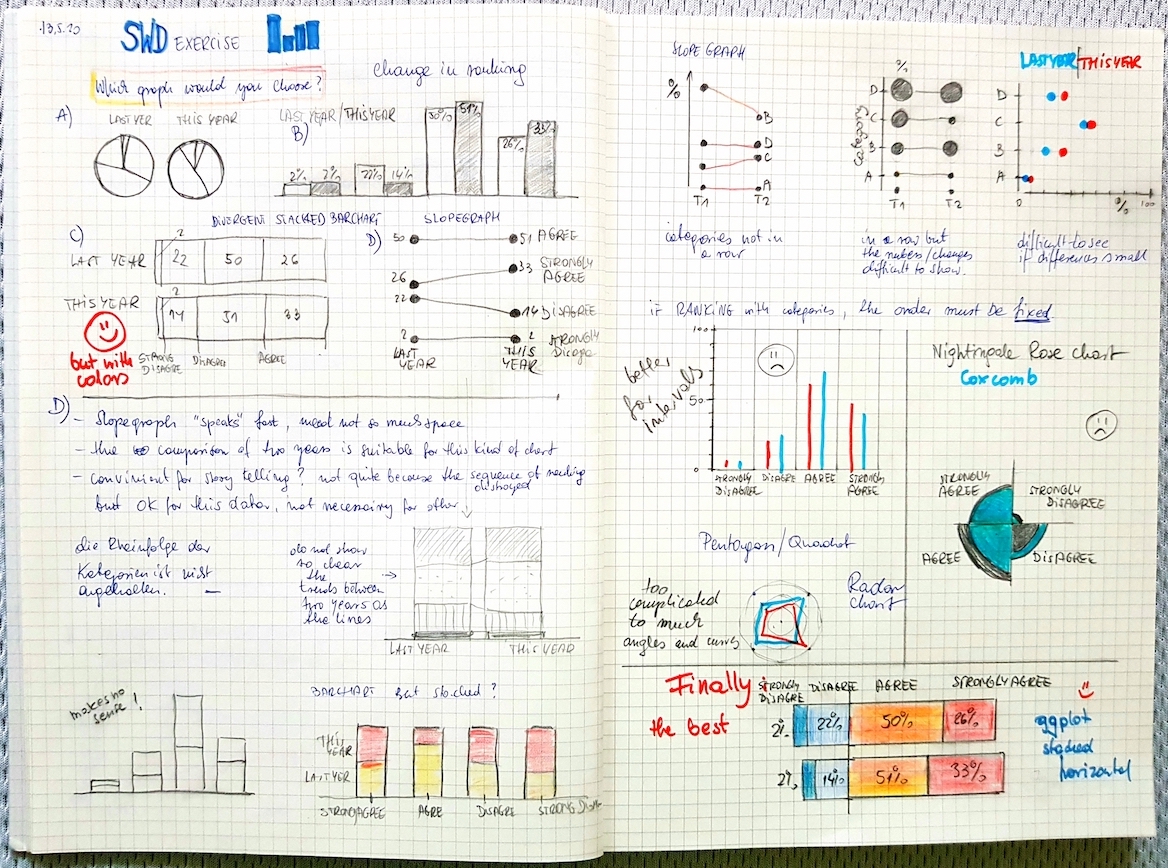 13.5.20
SWD EXERCISE
Which graph would you choose?
change in ranking
A)
LAST YER
THIS YEAR
LAST YEAR/THIS YEAR
B)
2%
2%
22%
14%
50%
51%
26%
33%
C)
DIVERGENT STACKED BARCHART
2
LAST YEAR
22
50
26
THIS YEAR
2
14
51
33
but with
colors
STRONG
DISAGRE
DISAGRE
AGREE
SLOPEGRAPH
D)
50
51 AGREE
26
33 STRONGLY
AGREE
22
14 DISAGREE
2
2 STRONGLY
LAST
YEAR
THIS
YEAR
D)
- Slopegraph "speaks" fast, need not so much space
- the comparison of two years is suitable for this kind of chart
- convinient for story telling? not quite because the sequence of ranking
destroyed
but OK for this data, not necessairy for other
die Rheinfolge der
Kategorien ist nicht
angehalten.
do not show
so clear
the
trends between
two years as
the lines
LAST YEAR
THIS YEAR
makes no
sense!
BARCHART but stacked?
THIS
YEAR
LAST YER
STRONG AGREE
AGRE
DISAGRE
STRONG
SLOPE GRAPH
%
B
D
C
A
T1
T2
categories not in
a row
%
category
D
C
B
A
T1
T2
in a row but
the nubers/changes
difficult to show.
LAST YEAR/THIS YEAR
D
C
B
A
0
%
100
difficult to see
if differences small
if RANKING with categories, the order must be fixed.
better
for
intervals
100
50
0
STRONGLY
DISAGREE
DISAGRE
AGREE
STRONGLY
AGREE
Nightingale Rose chart
Coxcomb
STRONGLY
AGREE
STRONGLY
DISAGREE
AGREE
DISAGREE
Pentagon/Quadrat
too
complicated
to much
angles and curves
Radar
chart
Finally:
the best
STRONGLY
DISAGREE
DISAGREE
AGREE
STRONGLY AGREE
2%
22%
50%
26%
2%
14%
51%
33%
ggplot
stacked
horizontal